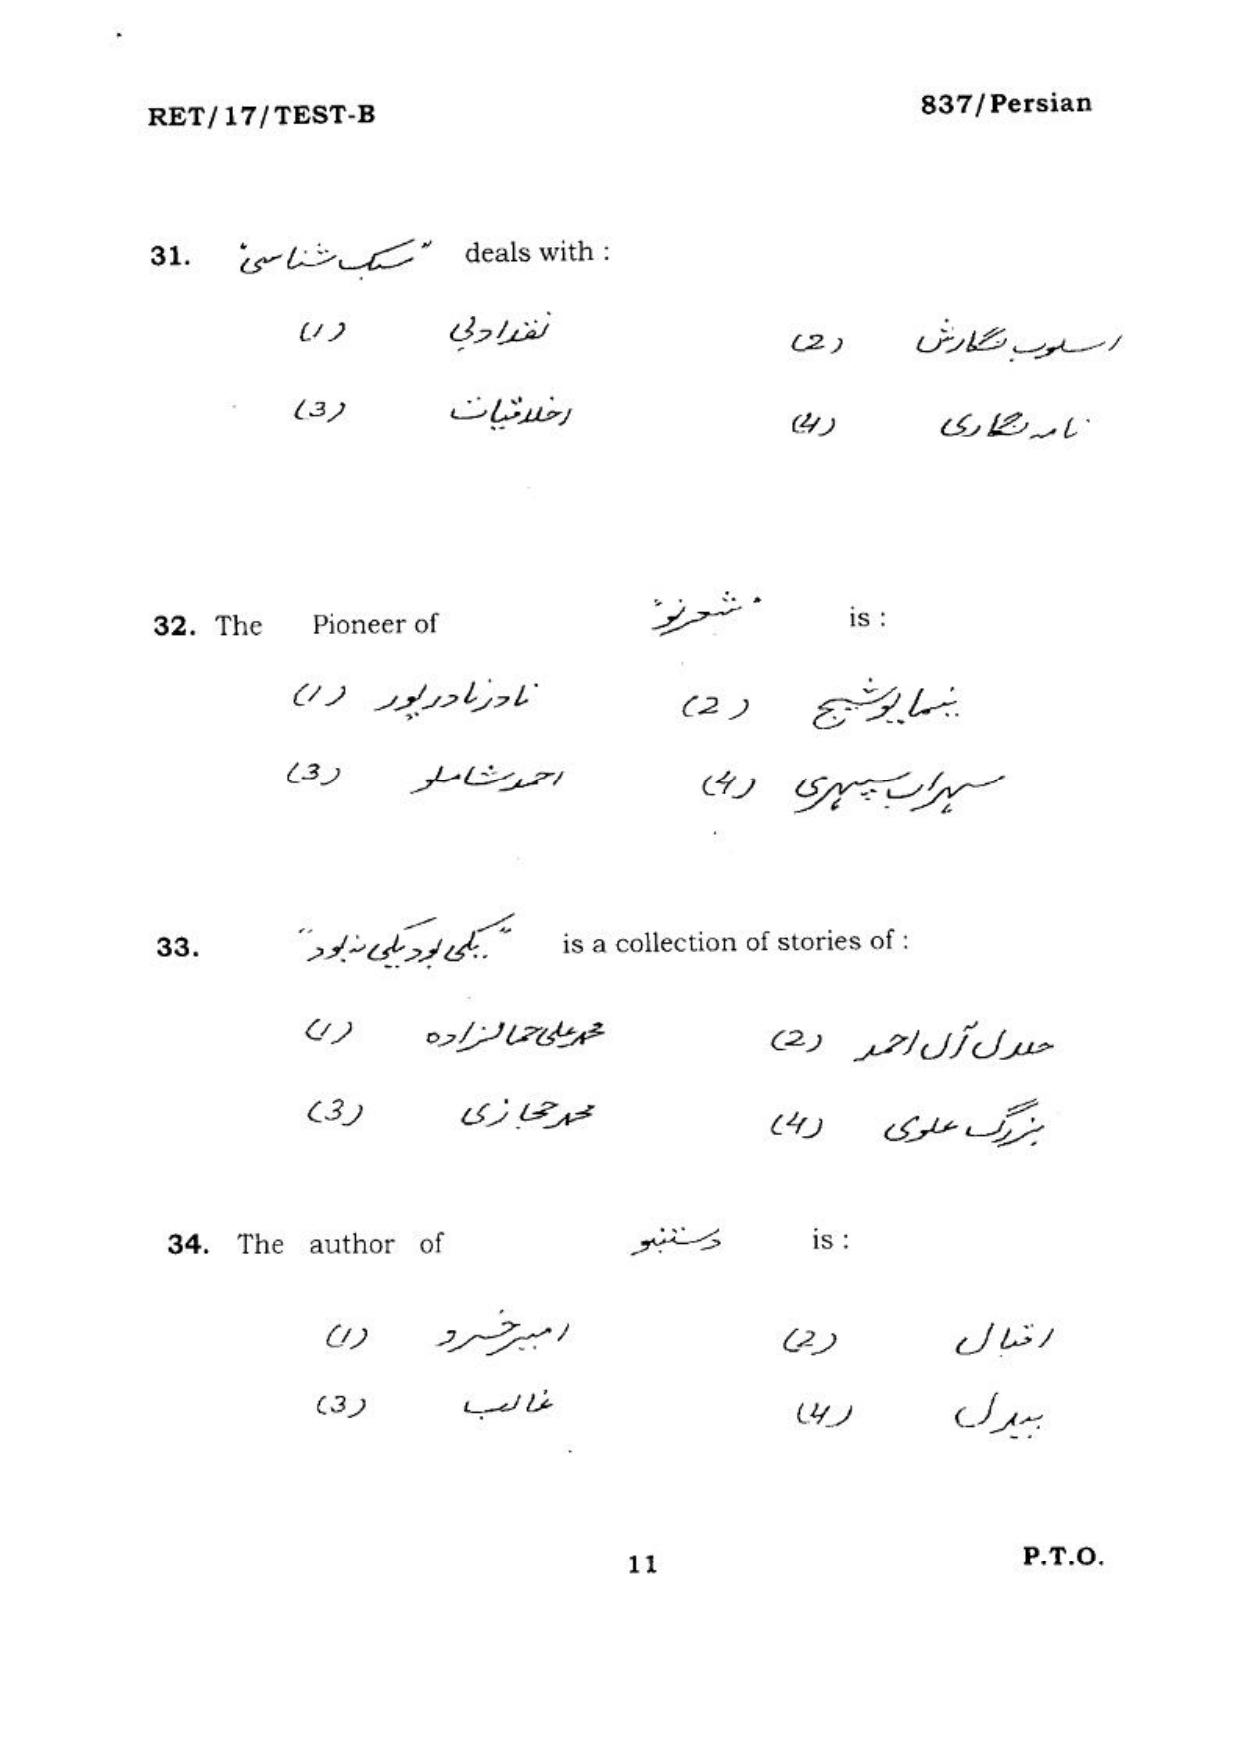 RET/17/TEST-B 837/Persian
31. "سبک شناسی" deals with :
(1) نقد ادبی (2) اسلوب نگارش
(3) اخلاقیات (4) نامہ نگاری
32. The Pioneer of "شعر نو" is :
(1) نادر نادر پور (2) نیما یوشیج
(3) احمد شاملو (4) سہراب سپہری
33. "یکی بود یکی نہ بود" is a collection of stories of :
(1) محمد علی جمالزادہ (2) جلال آل احمد
(3) محمد حجازی (4) بزرگ علوی
34. The author of دستنبو is :
(1) امیر خسرو (2) اقبال
(3) غالب (4) بیدل
11 P.T.O.